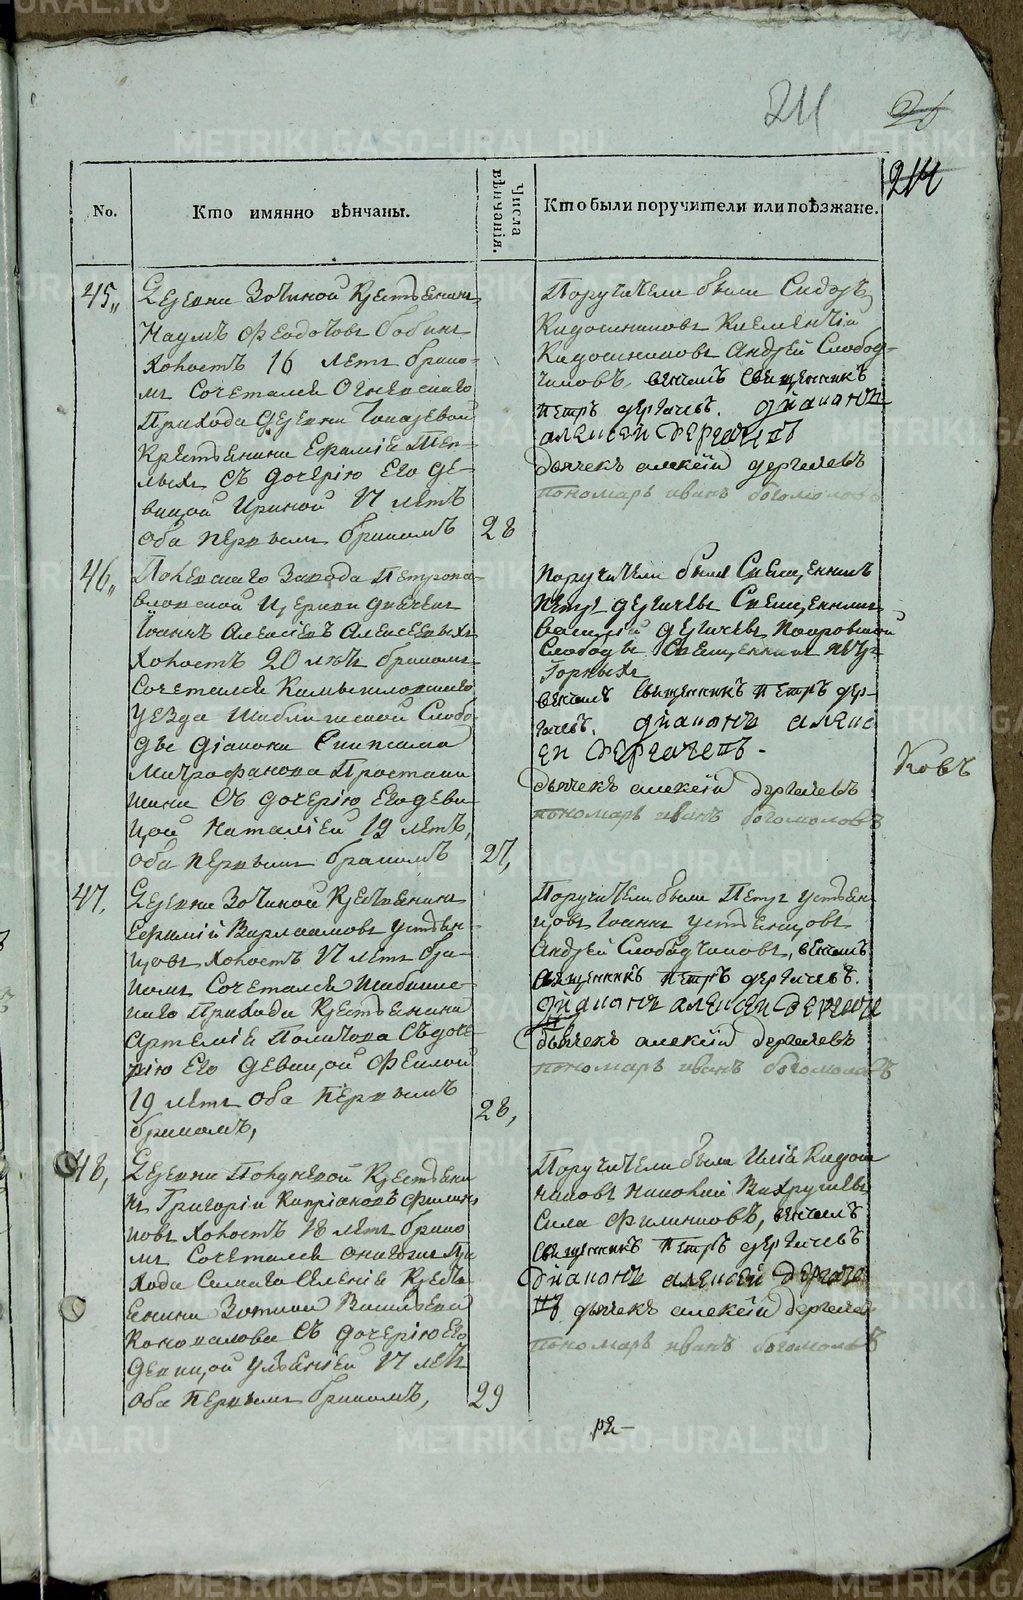 211
214
No.
Кто имянно вѣнчаны.
Числа вѣнчанія.
Кто были поручители или поѣзжане.
45,,
Деревни Зотиной Крестьянинъ
Наумъ Феодотовъ Бобинъ
Холостъ 16 летъ брако-
мъ Сочетался Огневскаго
Прихода Деревни
Крестьянина Ефимія Теп-
лыхъ съ дочерію Его де-
вицой Ириной 17 летъ
Оба первымъ бракомъ
28
Поручители были Сидоръ
Кидошниковъ Климентій
Кидошниковъ Андрей Слобод-
чиковъ, венчалъ Священникъ
петръ дергачевъ. діаконъ
алексей дергачевъ
дьячекъ алексѣй дергачевъ
пономарь иванъ богомоловъ
46,,
Завода Петропа-
вловской Церкви дьячекъ
Іоаннъ Алексіевъ Алексеевыхъ
Холостъ 20 летъ бракомъ
Сочетался Камышловскаго
Уезда Шаблишской Слобо-
ды діакона
Митрофанова
съ дочерію Его деви-
цой Наталіей 19 летъ,
Оба первымъ бракомъ
27,
Поручители были Священникъ
петръ дергачевъ Священникъ
Василій дергачевъ Покровской
Слободы Священникъ петръ
Горныхъ
венчалъ Священникъ петръ дер-
гачевъ. діаконъ алекс
ей дергачевъ -
дьячекъ алексѣй дергачевъ
пономарь иванъ богомоловъ
ковъ
47,
Деревни Зотиной Крестьянинъ
Ефимій Варлаамовъ Устьян-
цовъ Холостъ 17 летъ бра-
комъ Сочетался
Прихода Крестьянина
Артемія съ доче-
рію Его девицой Феклой
19 летъ Оба первымъ
бракомъ,
28,
Поручители были Петръ Устьян-
цовъ Іоаннъ Устьянцовъ
Андрей Слободчиковъ, венчалъ
Священникъ петръ дергачевъ.
діаконъ алексей дергачев
дьячекъ алексѣй дергачевъ
пономарь иванъ богомоловъ
48,
Деревни Крестьяни
нъ Григорій Кипріановъ Филип
повъ Холостъ 18 летъ брако
мъ Сочетался при
хода Самаго Селенія Крестья
нина Зотина Васильева
Коновалова съ дочерію Его
девицой Ульяніей 17 летъ
Оба первымъ бракомъ,
29
Поручители были Илія Кидош
никовъ Николай Вахрушевъ
Сила Филипповъ, венчалъ
Священникъ петръ дергачевъ
діаконъ алексей дергаче
въ дьячекъ алексѣй дергачев
пономарь иванъ богомоловъ
METRIKI.GASO-URAL.RU